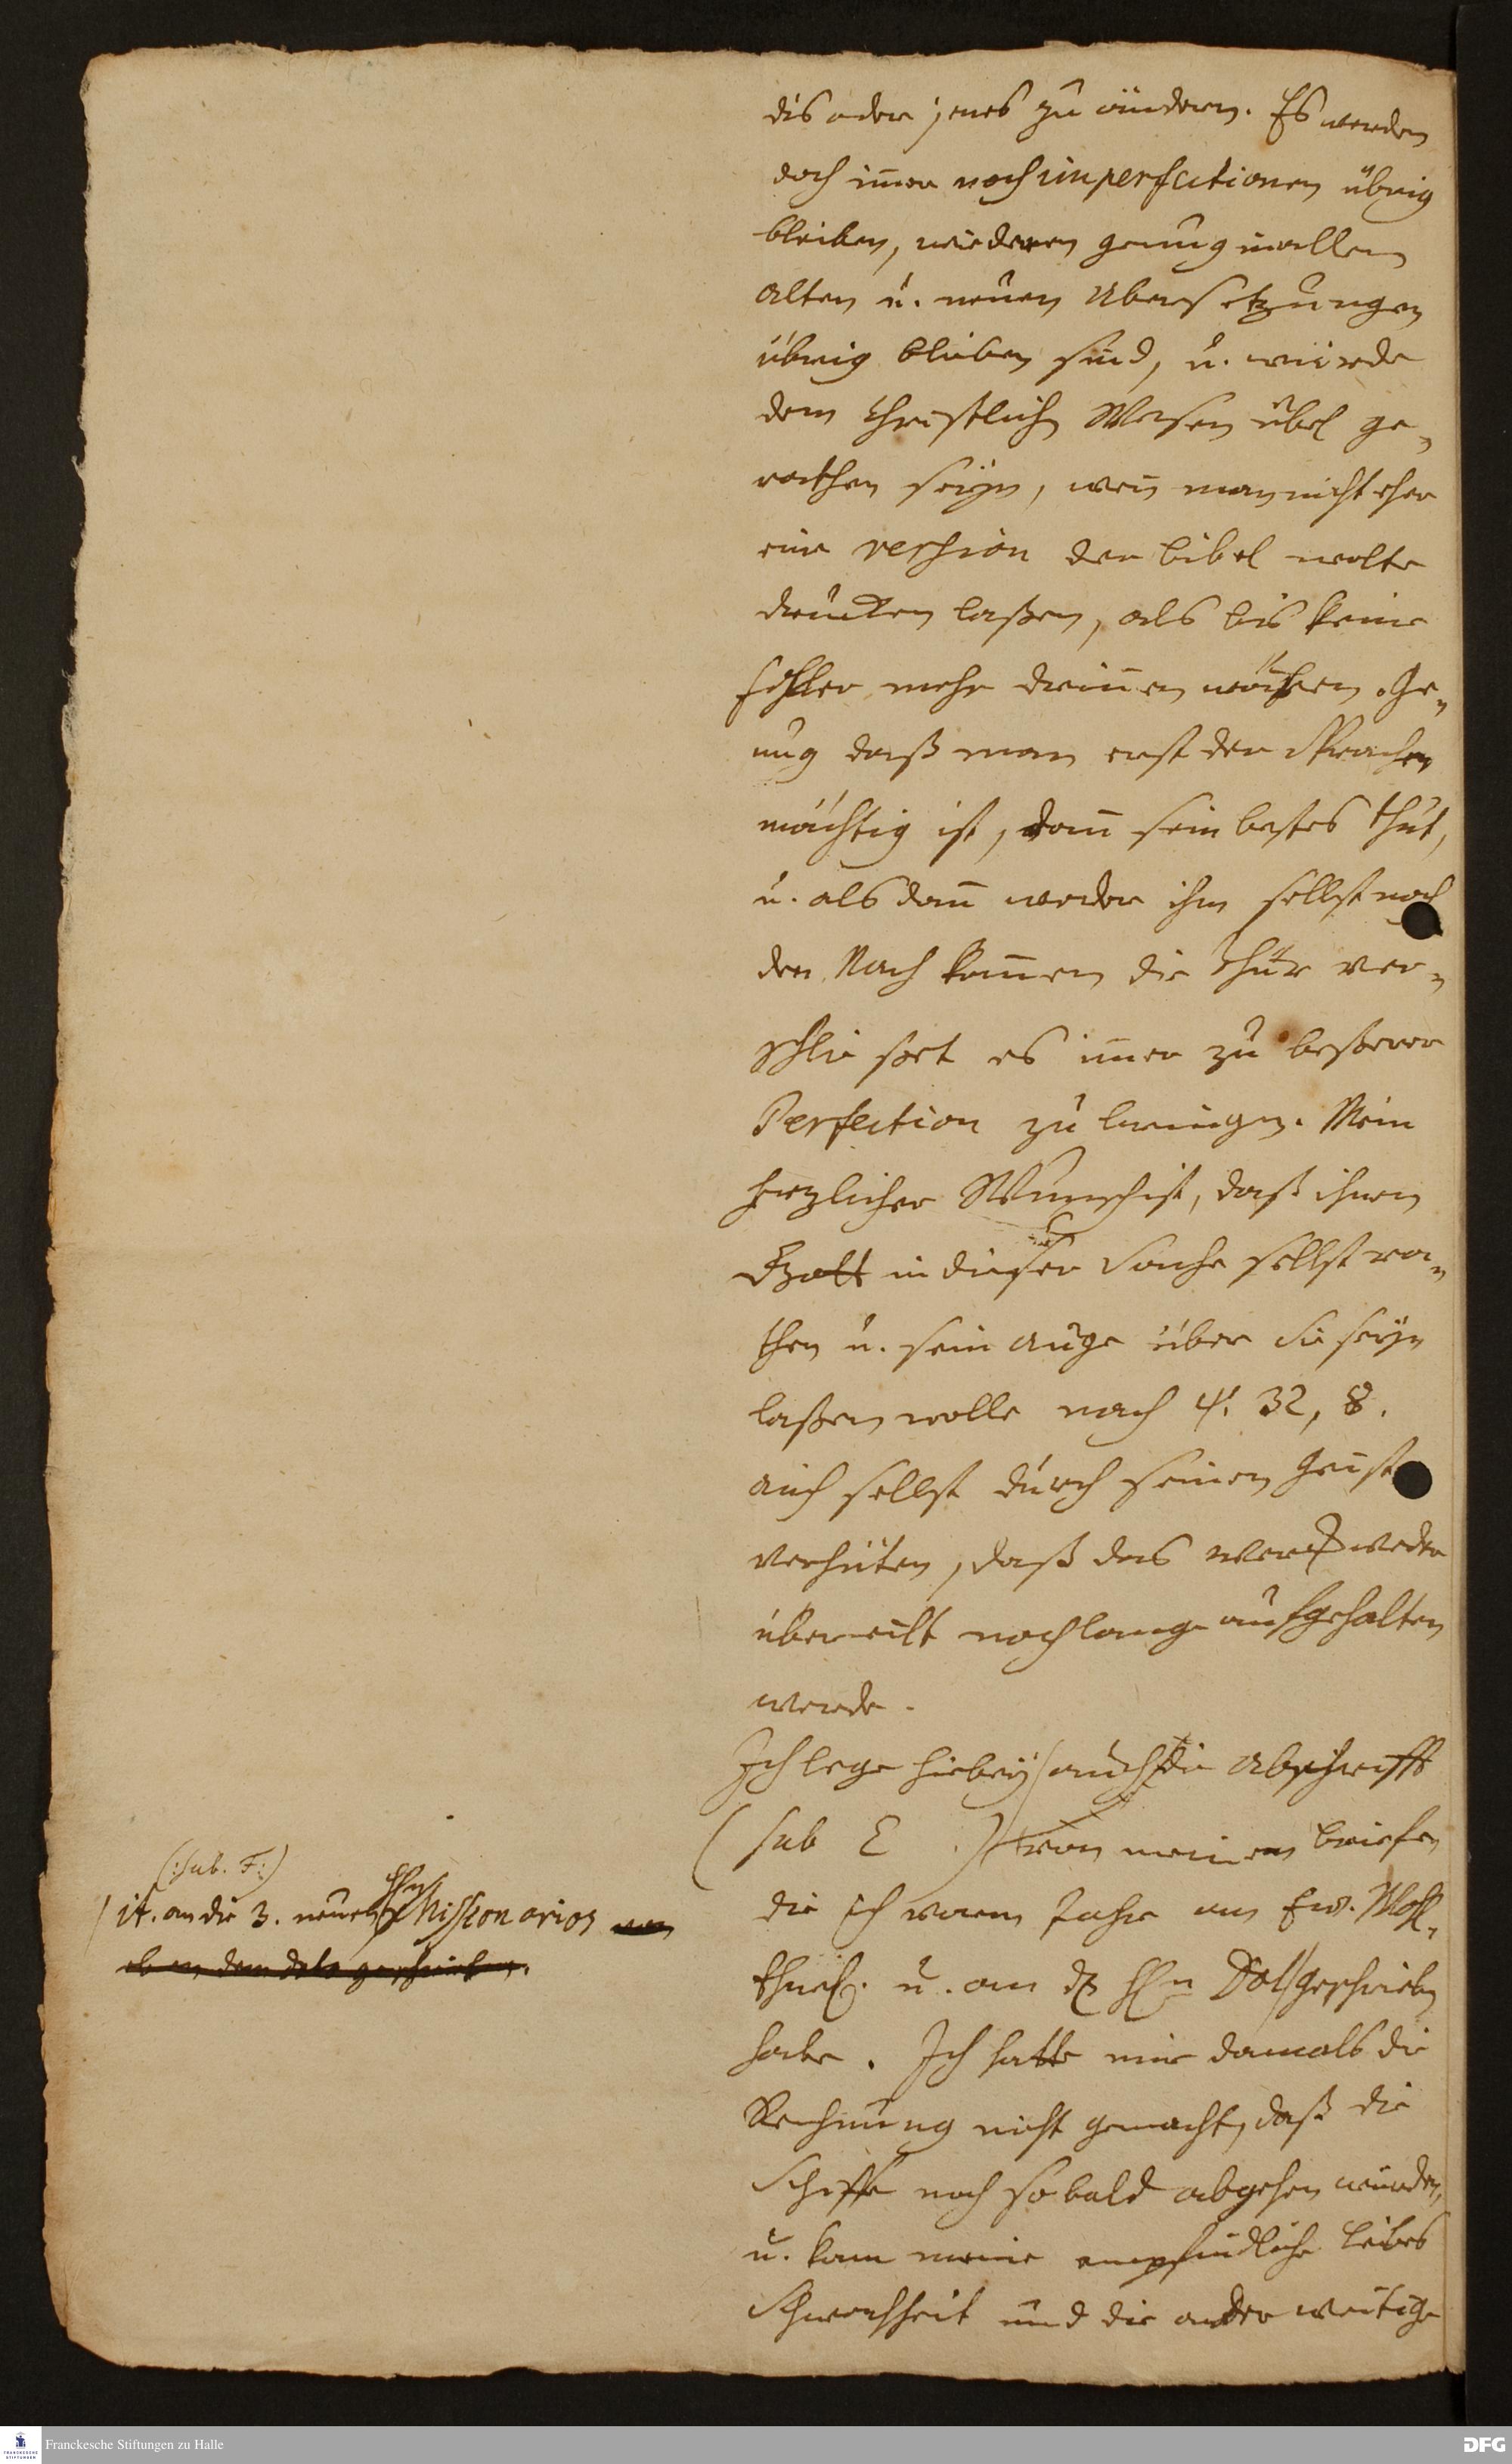 dis oder jenes zu ändern. Es werden
doch im̄er noch imperfectionen übrig
bleiben, wie deren genung in allen
alten u. neuen Ubersetzungen
übrig blieben sind, u. würde
dem Christlichen Wesen übel ge-
rathen seÿn, weñ man nicht eher
eine version der bibel wolte
drucken laßen, als bis keine
Fehler mehr driñen wären. Ge-
nug daß man erst der Sprachen
mächtig ist, dañ sein bestes thut,
u. alsdañ weder ihm selbst noch
den Nachkom̄en die Thür ver-
schließet es im̄er zu beßerer
Perfection zu bringen. Mein
hertzlicher Wunsch ist, daß ihnen
Gott in dieser Sache selbst ra-
then u. sein auge über Sie seÿn
laßen wolle nach ψ. 32, 8.
auch selbst durch seinen Geist
verhüten, daß das werck weder
übereilt noch lange aufgehalten
werde.
Ich lege hiebeÿ auch die Abschrifft
(sub E.) von meinen briefen
(:sub. F:)
it. an die 3. neuen Hn Missionarios von
eben dem dato geschrieben.
die ich vorm Jahre an Ew. Wohl-
Ehrw. u. an d. Hn Dal geschrieben
habe. Ich hatte mir damals die
Rechnung nicht gemacht, daß die
Schiffe noch so bald abgehen würden,
u. kam meine empfindliche Leibes
Schwachheit und die anderweitige
Franckesche Stiftungen zu Halle
DFG